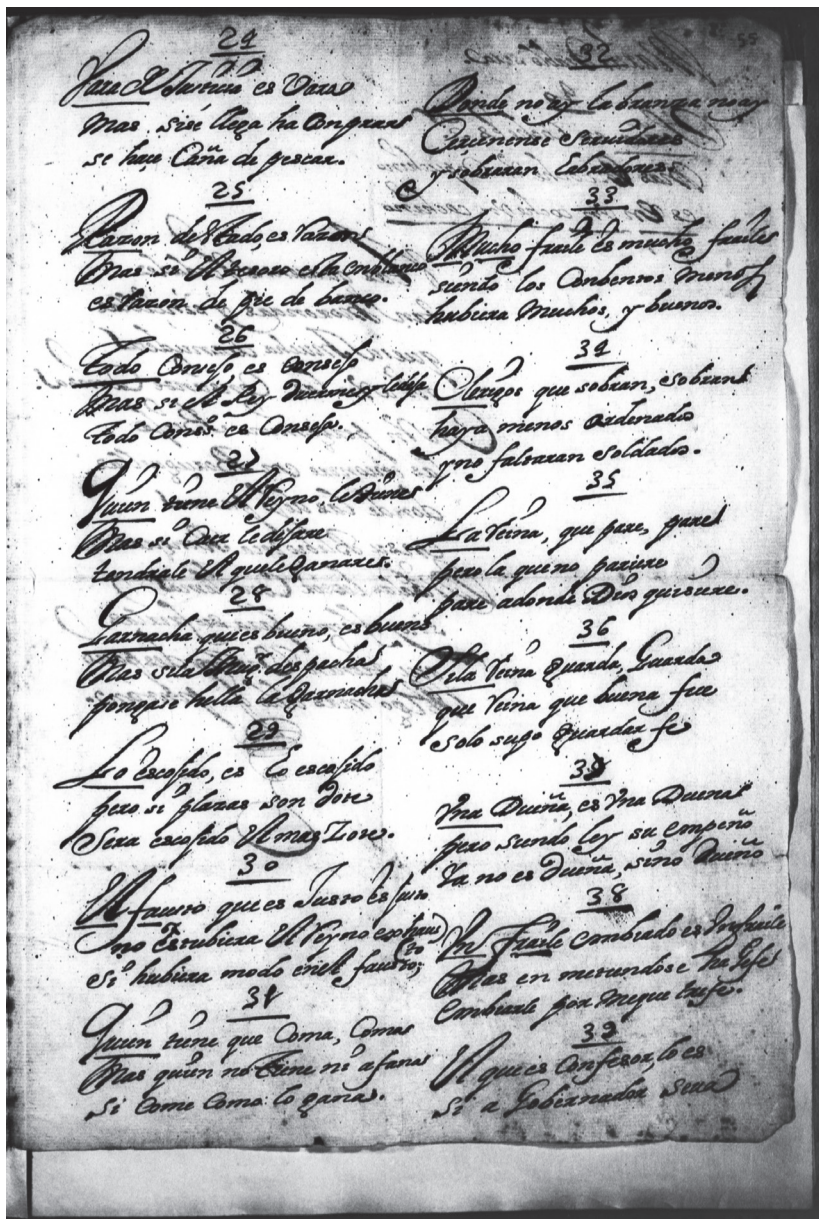 24
Vara es Vara
mas si se llega ha Comprar
se haze Caña de pescar.
25
Razon de estado, es razon
Mas si el tesoro esta en blanco
es razon de pie de banco.
26
todo Consejo, es consejo
Mas si el Rey duerme y le deja
todo Cons.º es Conseja.
27
Quien tiene el Reyno le tiene
Mas si Caer le dejare
tendrale el que le ganare.
28
Garnacha que es bueno, es bueno
Mas si la despacha
pongase hella la Garnacha
29
Lo escojido, es Lo escojido
pero si plazas son doze
Sera escojido el mas Zoze.
30
El fausto que es Justo es justo
no estubiera el Reyno exhausto
si hubiera modo en el fausto,
31
Quien tiene que Coma, Coma
Mas quien no tiene ni afana
si come Como lo gana.
55
32
Donde no ay labranza no ay
Cercenense Servidores
y sobraran Labradores
33
Mucho fraile es mucho fraile
siendo los Conbentos menos
hubiera Muchos, y buenos.
34
Clerigos que sobran, sobran
haya menos ordenados
y no faltaran soldados.
35
La Reina, que pare, pare
pero la que no pariere
pare adonde Dios quisiere.
36
Si la Reina Guarda, Guarda
que Reina que buena fue
Solo supo Guardar fe
37
Vna Dueña, es Vna Duena
pero siendo ley su empeño
Ya no es dueña, sino Dueño
38
Vn Fraile embiado es Vn fraile
Mas en metiendose ha Gefe
Embiarle por mequetrefe.
39
El que es Confesor, lo es
si a Gobernador sera